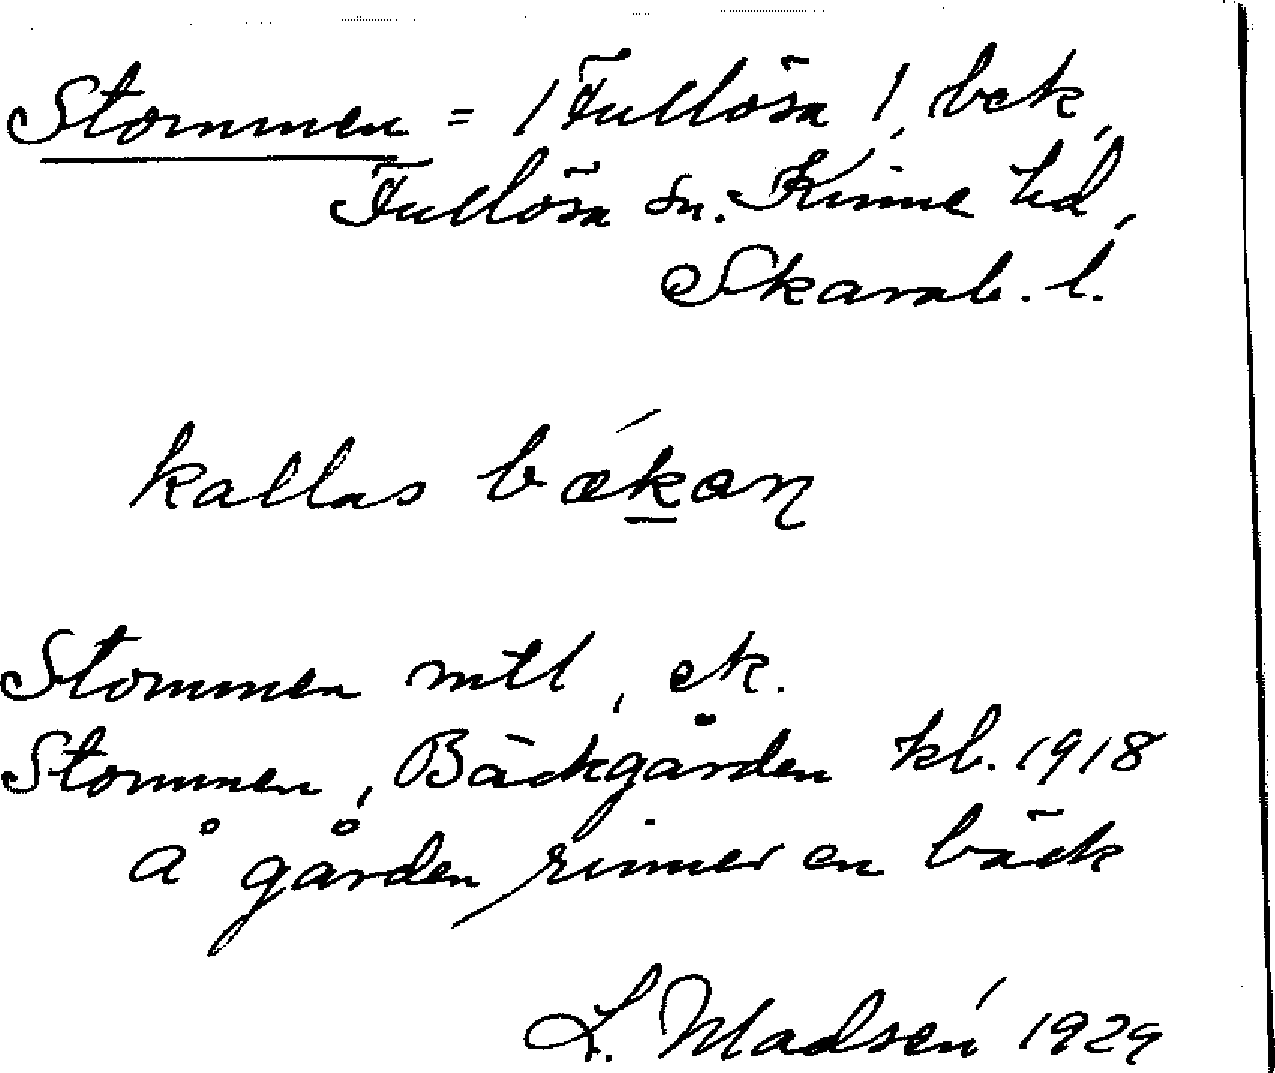 Stommen = / Fullösa /, bek,
Fullösa sn. Kinne hd,
Skarab. l.
kallas bækan
Stommen mtl, ek.
Stommen, Bäckgården kl. 1918
Å gården rinner en bäck
L. Madsén 1929